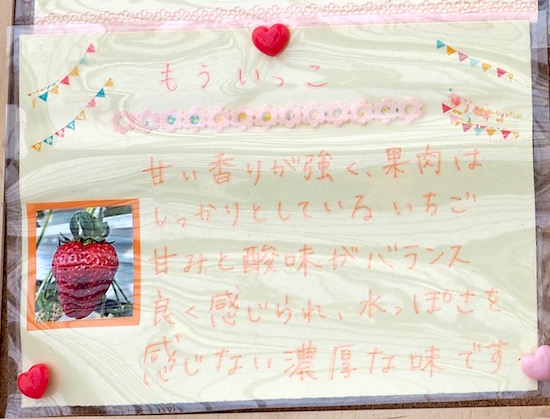 もういっこ
甘い香りが強く、果肉は
しっかりとしているいちご
甘みと酸味がバランス
良く感じられ、水っぽさを
感じない濃厚な味です